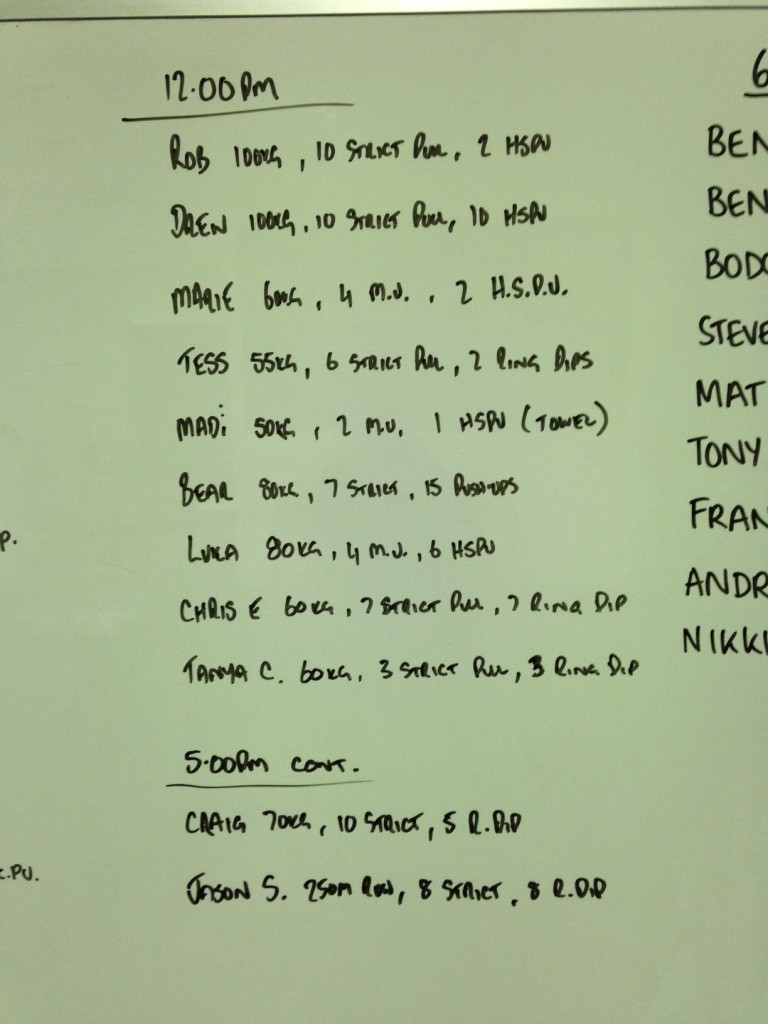 12.00pm
ROB 100KG, 10 STRICT PULL, 2 HSPU
DREN 100KG, 10 STRICT PULL, 10 HSPU
MARIE 60KG, 4 M.U., 2 H.S.P.U.
TESS 55KG, 6 STRICT PULL, 2 RING DIPS
MADi 50KG, 2 M.U, 1 HSPU (TOWEL)
BEAR 80KG, 7 STRICT, 15 PUSH-UPS
LUKA 80KG, 4 M.U., 6 HSPU
CHRIS E 60KG, 7 STRICT PULL, 7 RING DIP
TANYA C. 60KG, 3 STRICT PULL, 3 RING DIP
5.00pm CONT.
CRAIG 70KG, 10 STRICT, 5 R.DIP
JASON S. 250M ROW, 8 STRICT, 8 R.DIP
P.
.PU.
6
BEN
BEN
BOD
STEVE
MAT
TONY
FRAN
ANDR
NIKKI